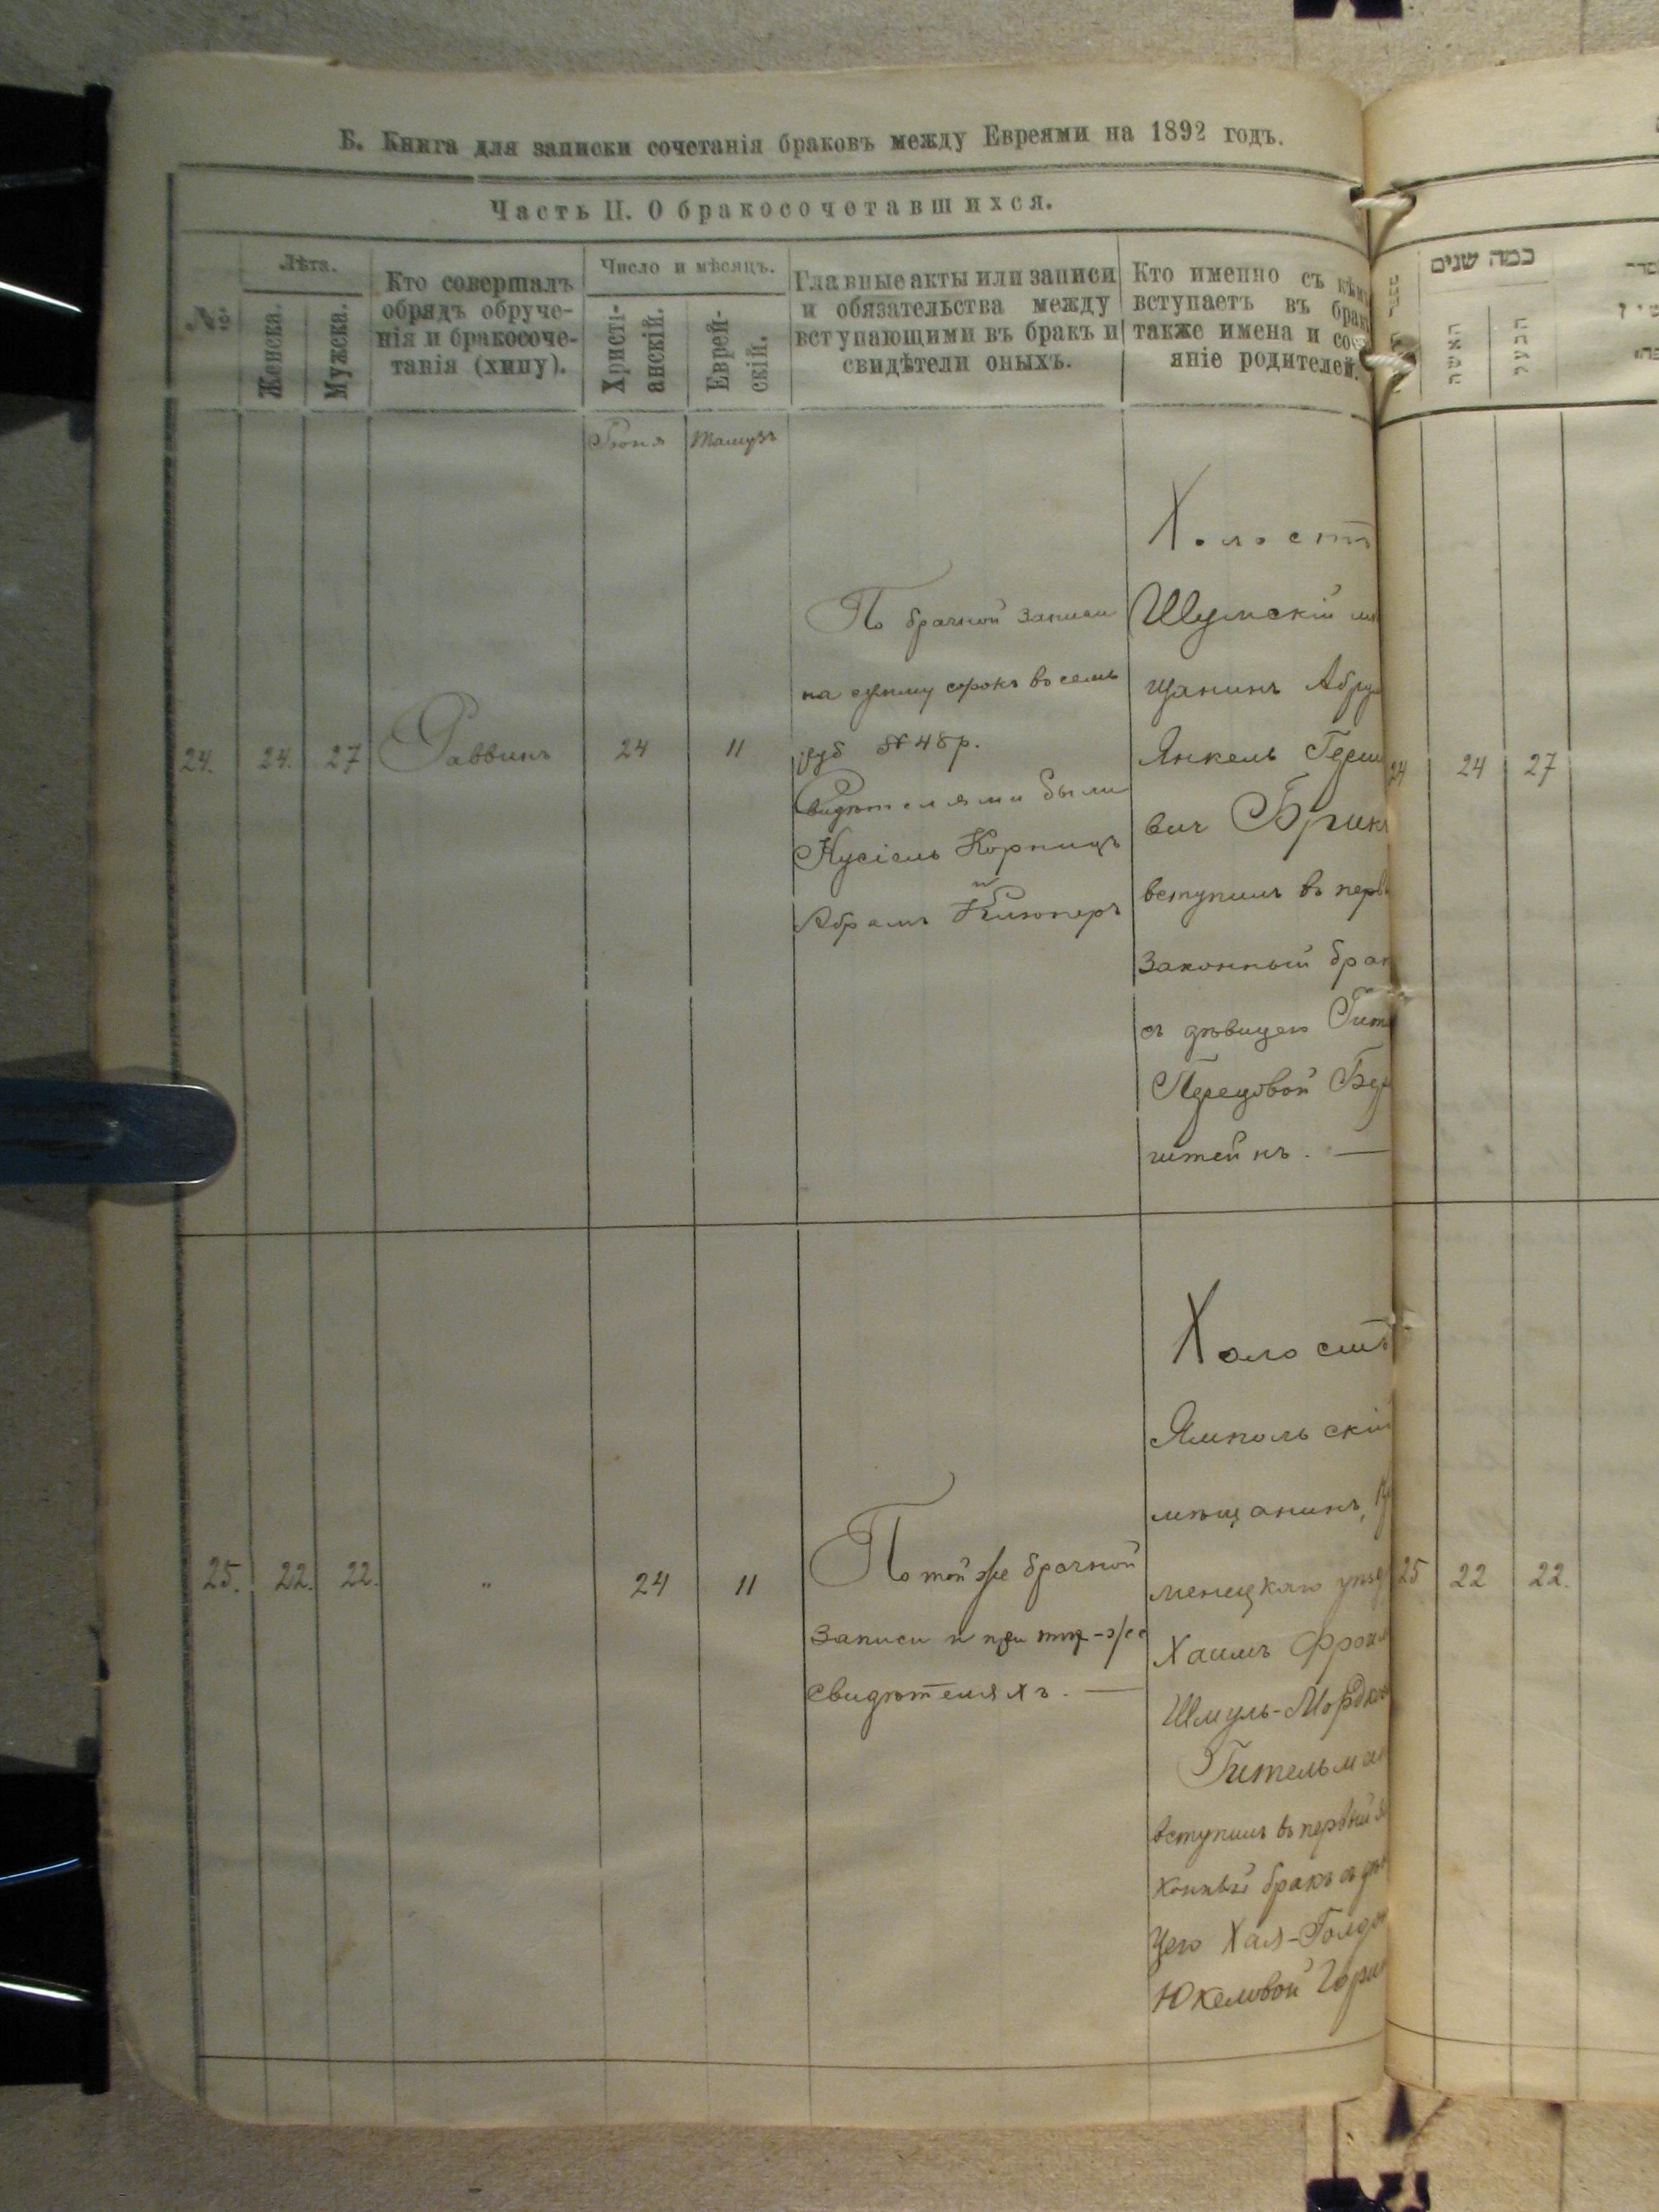 Б. Книга для записки сочетанія браковъ между Евреями на 1892 годъ.
Часть II. О бракосочетавшихся.
№
Лѣта.
Женска.
Мужска.
Кто совершалъ
обрядъ обруче-
нія и бракосоче-
танія (хипу).
Число и мѣсяцъ.
Христі-
анскій.
Еврей-
скій.
Главные акты или записи
и обязательства между
вступающими въ бракъ и
свидѣтели оныхъ.
Кто именно съ кѣмъ
вступаетъ въ брак
также имена и сос
яніе родителей.
Іюня
Тамузъ
24.
24.
27
Раввинъ
24
11
По брачной записи
на сумму сорокъ восемь
руб 48 р.
Свидѣтелями были
Нусіель Корницъ
и
Абрамъ Клюперъ
Холостъ
Шумскій мѣ
щанинъ Абру
Янкель Герш
вич Брик
вступилъ въ перв
законный брак
съ дѣвицею Гит
Перецовой Бер
штейнъ. —
25.
22.
22.
"
24
11
По той же брачной
записи и при тѣхъ-же
свидѣтеляхъ. —
Холостъ
Ямпольскій
мѣщанинъ, К
менецкаго уѣзд
Хаимъ Фроим
Шмуль-Мордко
Гительман
вступилъ въ первый за
конный бракъ съ дѣв
цею Хая-Голда
Юкелевой Гори
כמה שנים
האשה
הבעל
24
24
27
25
22
22.